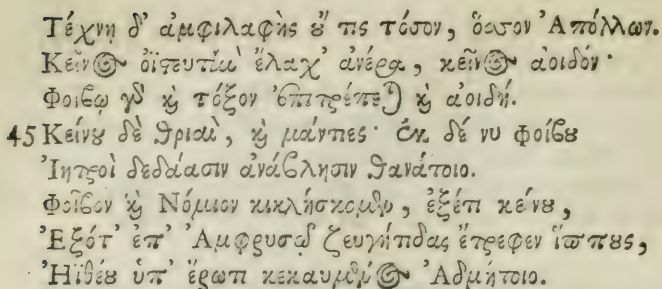 Τέχνῃ δ' ἀμφιλαφὴς ὔ τις τόσον, ὅσσον Ἀπόλλων.
Κεῖνος ὀϊςευτὴν ἔλαχ' ἀνέρα, κεῖνος ἀοιδόν·
Φοίβῳ γὸ κỳ τόξον ἐπιτρέπεται κỳ ἀοιδή.
45 Κείνȣ δὲ θριαὶ, κỳ μάντιες· ἐκ δέ νυ φοίβȣ
Ἰητροὶ δεδάασιν ἀνάβλησιν θανάτοιο.
Φοῖβον κỳ Νόμιον κικλήσκομϸυ, ἐξέτι κείνȣ,
Ἐξότ' ἐπ' Ἀμφρυσῷ ζευγήτιδας ἔτρεφεν ἵππȣς,
Ἠϊθέȣ ὑπ' ἔρωτι κεκαυμένος Ἀδμήτοιο.